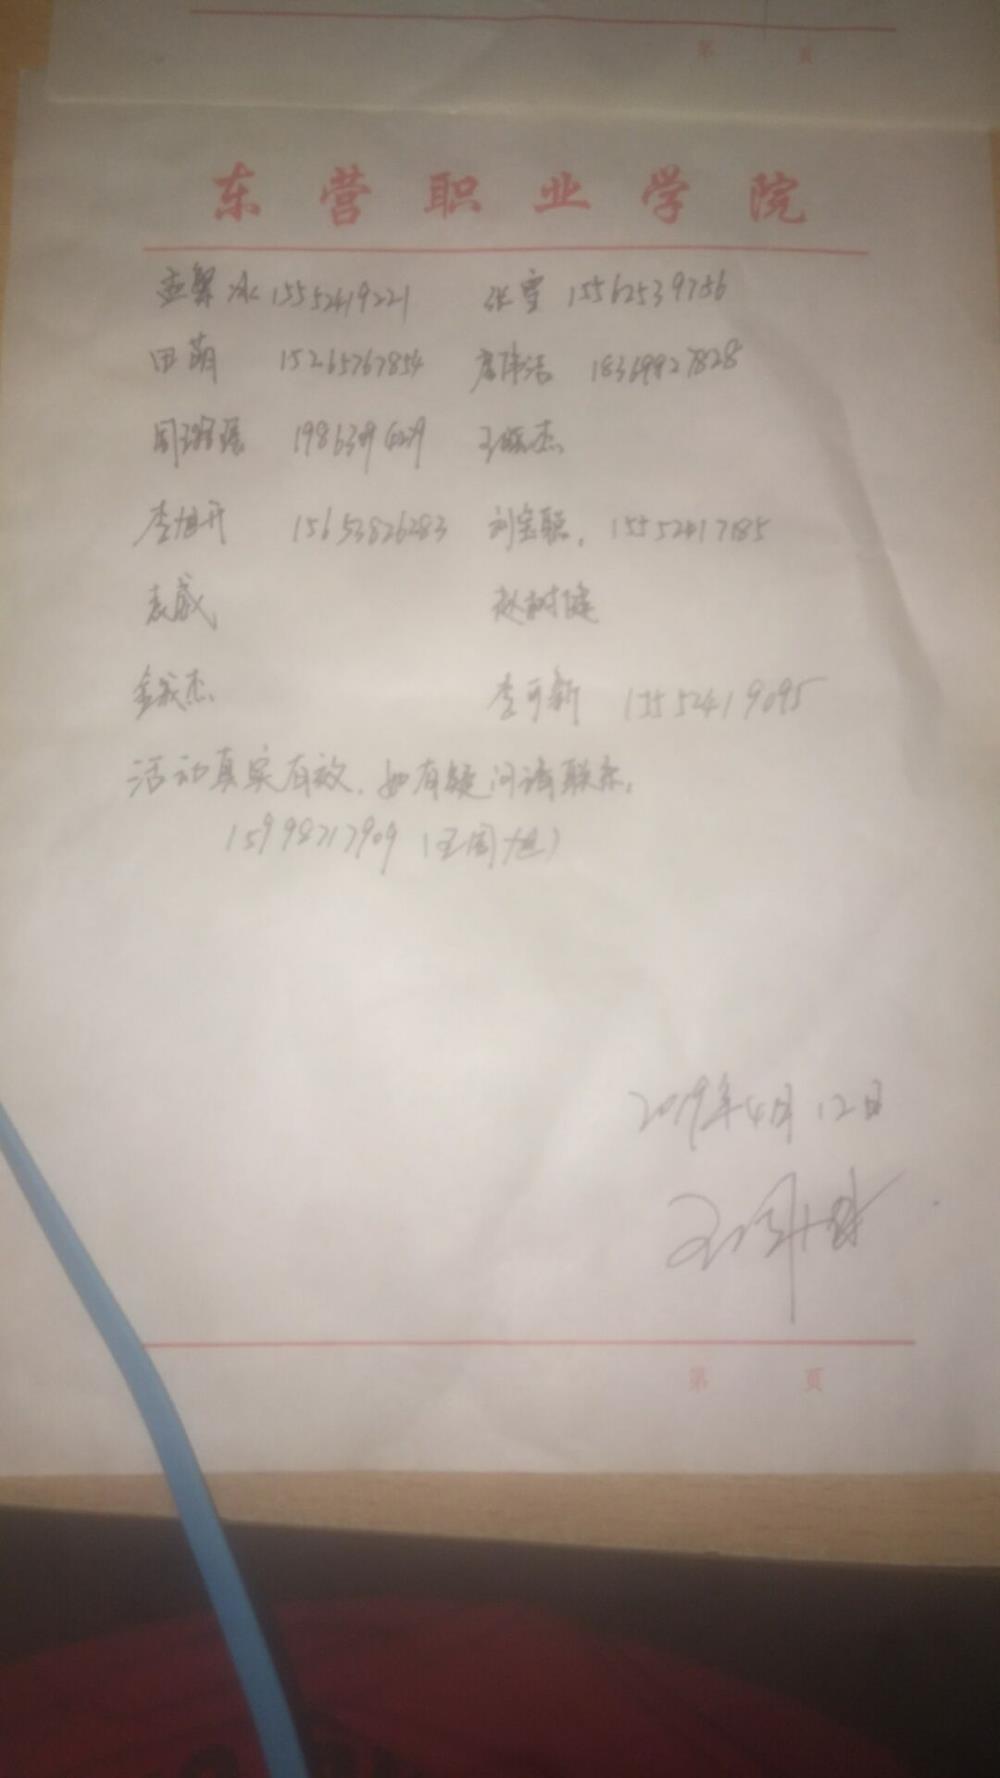 第 页
东营职业学院
冰 15552419221 张雪 15562539756
田萌 15265767854 洁 18369927828
周 杰
李旭开 15653826283 刘宝聪. 15552417185
袁威 赵树健
金成杰 李可新 15552419095
活动真实有效.如有疑问请联系.
15998717909(王周旭)
2019年4月12日
第 页